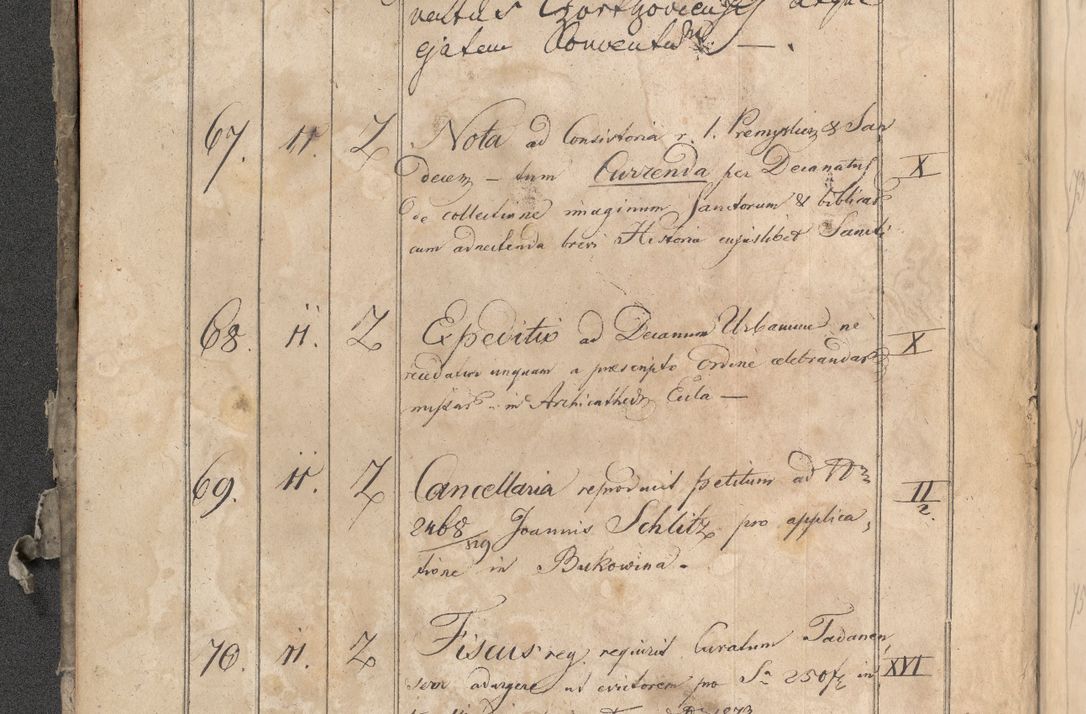 ventus Czortkoviensis atque
ejatem Conventu
67. 11. Z Nota ad Consistoria r. l. Premysliens & San
decen – tum Currenda per Decanatus X
de collectione imaginum Sanctorum & biblicas
cum adnectenda brevi Historia cujuslibet Sancti
68. 11. Z Expeditio ad Decanum Urbanum ne X
recedatur unquam a præscripto Ordine celebrandas
missas in Archicathedr Eccla —
69. 11. Z Cancellaria reproducit petitum ad II/2.
2468/819 Joannis Schlitz pro applica,
tione in Bukowina.
70. 11. Z Fiscus reg. requirit Curatum Tadanen, XVI
sem adurgere ut evictorem pro 250 f in